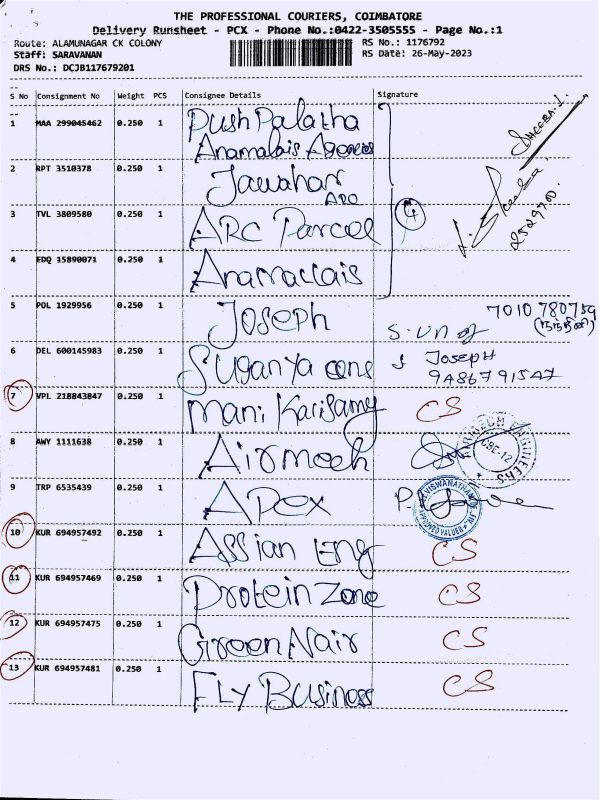 THE PROFESSIONAL COURIERS, COIMBATORE
Delivery Runsheet - PCX - Phone No.:0422-3505555 - Page No.:1
Route: ALAMUNAGAR CK COLONY RS No.: 1176792
Staff: SARAVANAN RS Date: 26-May-2023
DRS No.: DCJB117679201
S No Consignment No Weight PCS Consignee Details Signature
1 MAA 299045462 0.250 1 PushPalatha
Anamalais Agencies
SHEEBA.J.
2 RPT 3510378 0.250 1 Jawahar
ARC
3 TVL 3809580 0.250 1 ARC Parcel 4
2529700.
4 EDQ 15890071 0.250 1 Anamallais
5 POL 1929956 0.250 1 Joseph 7010780759
6 DEL 600145983 0.250 1 Suganya cons JOSEPH
9486791547
7 VPL 218843847 0.250 1 Mani Karisamy CS
8 AWY 1111638 0.250 1 Airmech
CBE-12
ENGINEERS
9 TRP 6535439 0.250 1 Apex
VISWANATHAN
APPROVED VALUER
10 KUR 694957492 0.250 1 Assian Eng CS
11 KUR 694957469 0.250 1 Protein Zone CS
12 KUR 694957475 0.250 1 Green Nair CS
13 KUR 694957481 0.250 1 Fly Business CS